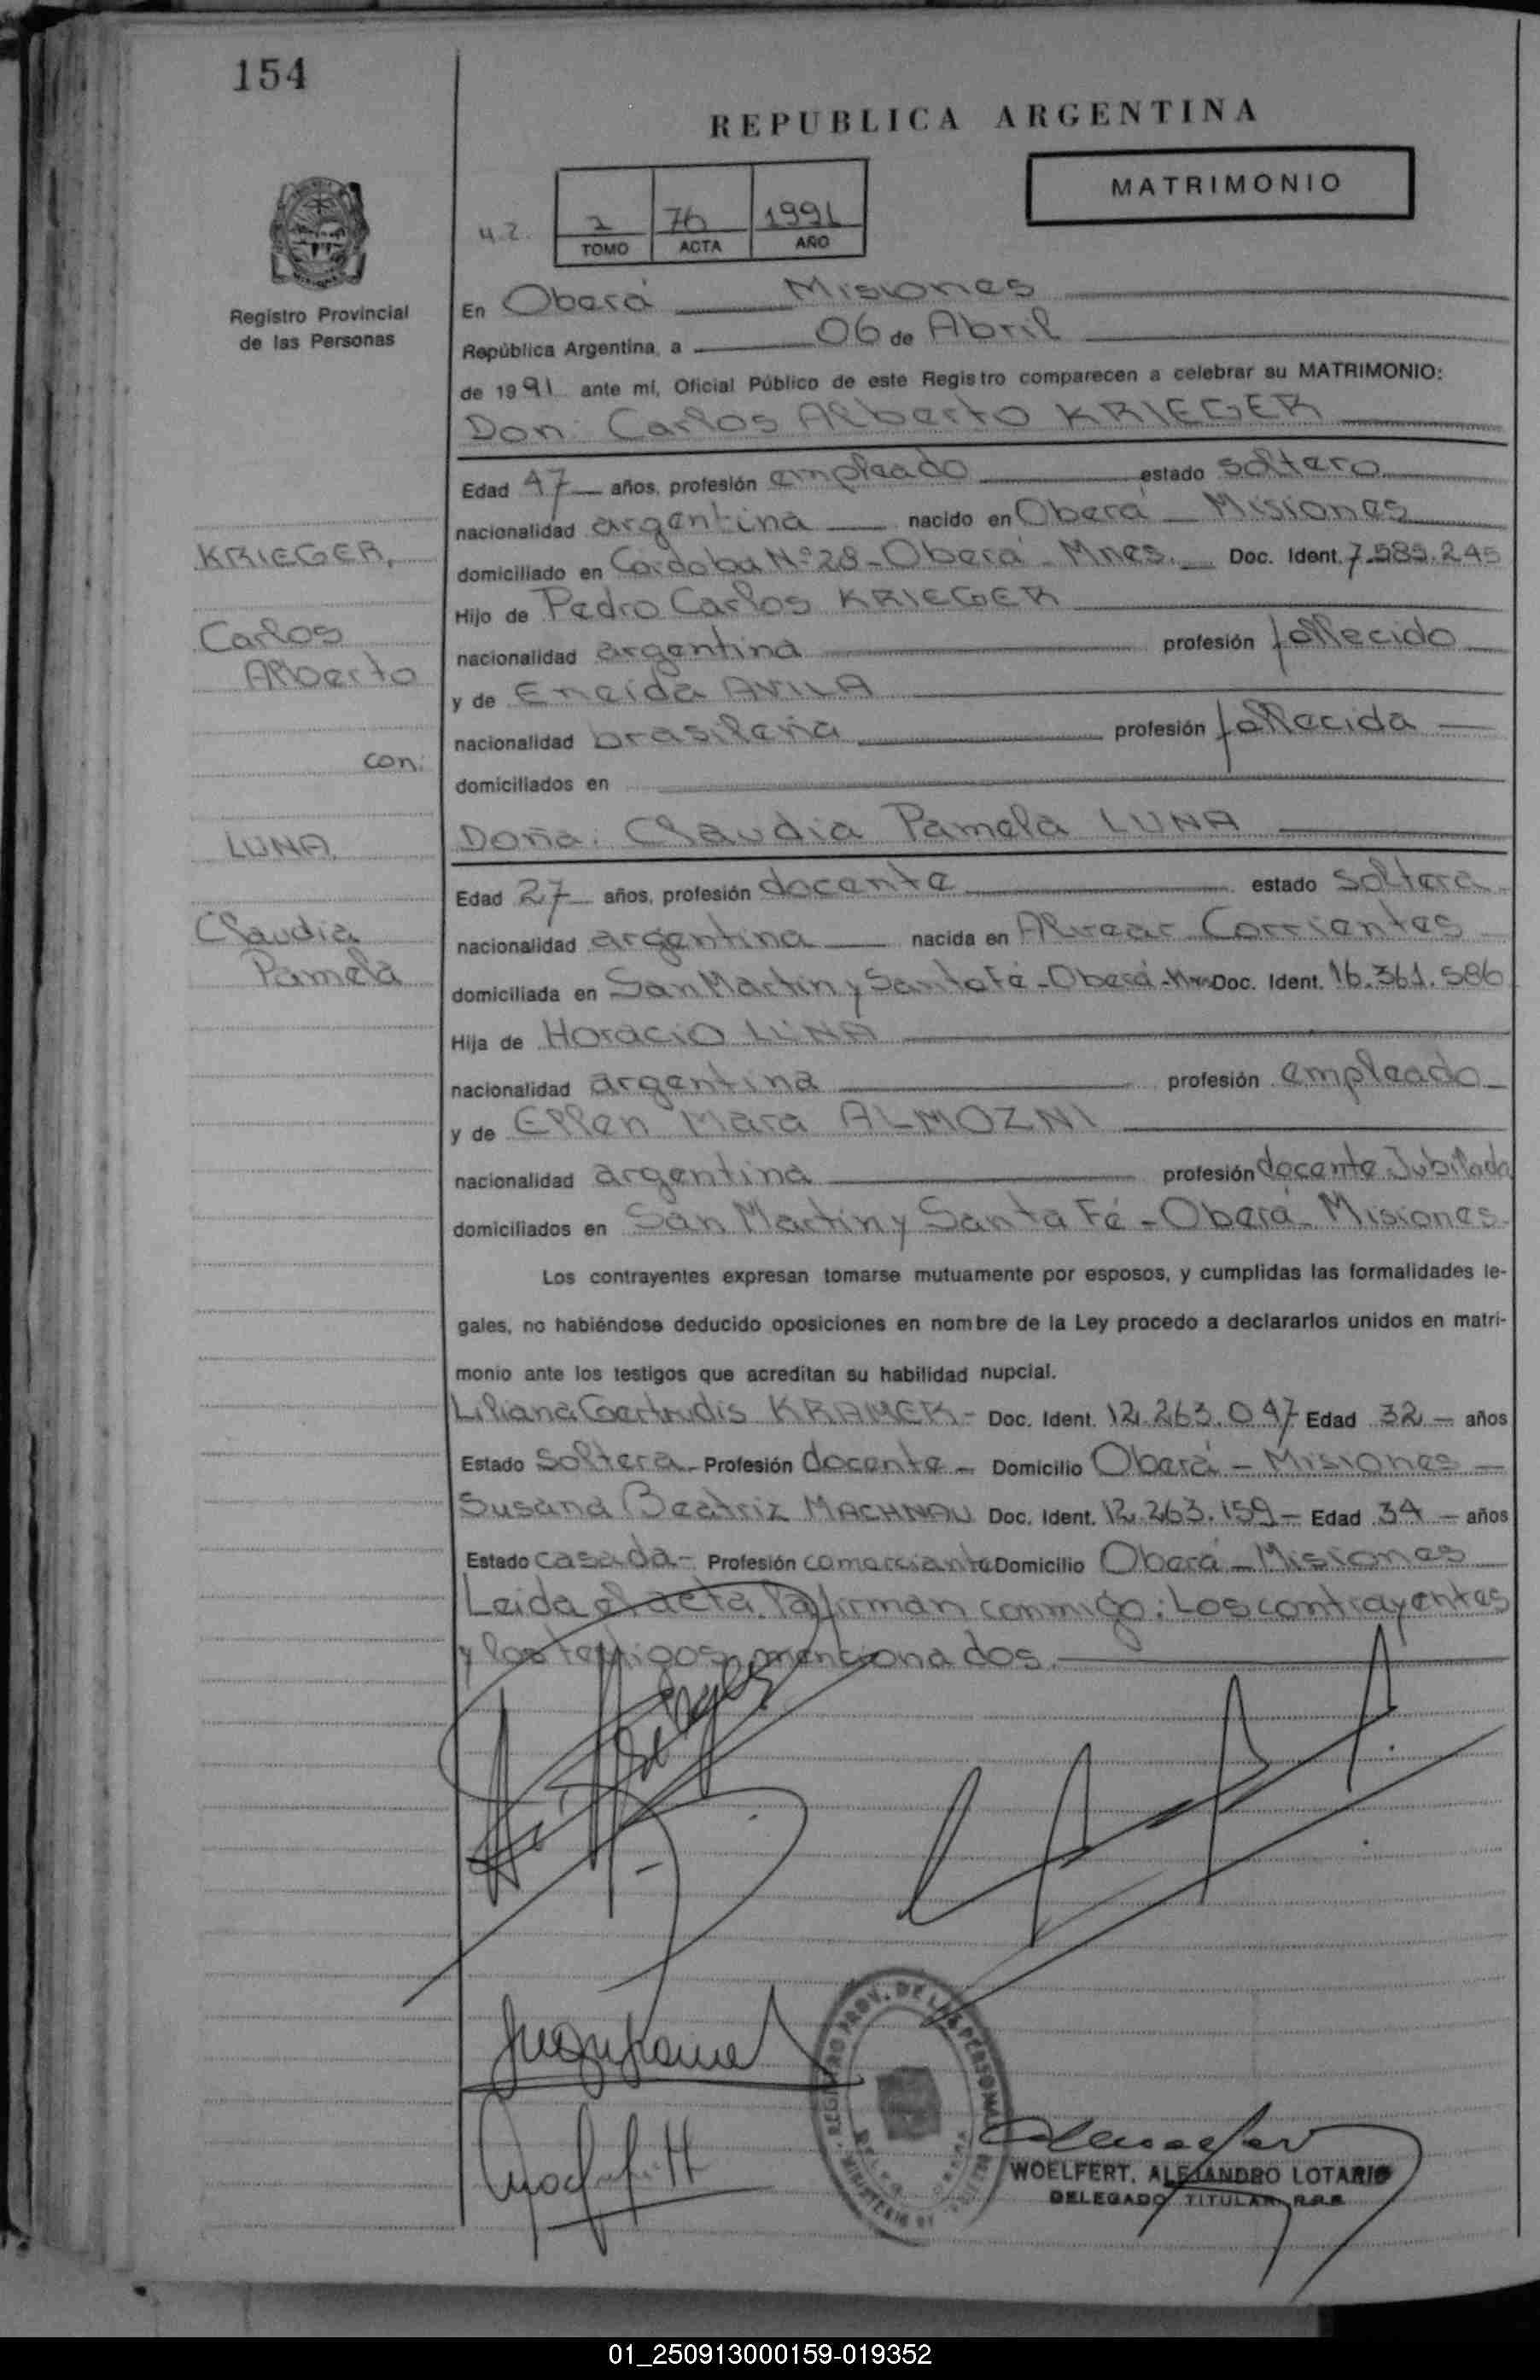 154
REPUBLICA ARGENTINA
MATRIMONIO
2 76 1991
TOMO ACTA AÑO
Registro Provincial
de las Personas
En Oberá Misiones
República Argentina, a 06 de Abril
de 1991 ante mí, Oficial Público de este Registro comparecen a celebrar su MATRIMONIO:
Don: Carlos Alberto KRIEGER
Edad 47 años, profesión empleado estado soltero
nacionalidad argentina nacido en Oberá - Misiones
KRIEGER,
domiciliado en Córdoba N° 28 - Oberá - Mnes. Doc. Ident. 7.585.245
Hijo de Pedro Carlos KRIEGER
Carlos
nacionalidad argentina profesión fallecido
Alberto
y de Eneida AVILA
nacionalidad brasileña profesión fallecida
con:
domiciliados en
Doña: Claudia Pamela LUNA
LUNA
Edad 27 años, profesión docente estado soltera
Claudia
nacionalidad argentina nacida en Alvear Corrientes
Pamela
domiciliada en San Martín y Santa Fé - Oberá - Mnes Doc. Ident. 16.361.586
Hija de Horacio LUNA
nacionalidad argentina profesión empleado
y de Ellen Mara ALMOZNI
nacionalidad argentina profesión docente Jubilada
domiciliados en San Martín y Santa Fé - Oberá - Misiones.
Los contrayentes expresan tomarse mutuamente por esposos, y cumplidas las formalidades le-
gales, no habiéndose deducido oposiciones en nombre de la Ley procedo a declararlos unidos en matri-
monio ante los testigos que acreditan su habilidad nupcial.
Liliana Gertrudis KRAMER - Doc. Ident. 12.263.047 Edad 32 - años
Estado Soltera - Profesión docente - Domicilio Oberá - Misiones -
Susana Beatriz MACHNAU Doc. Ident. 12.263.159 - Edad 34 - años
Estado casada - Profesión comerciante Domicilio Oberá - Misiones
Leida el acta, la firman conmigo: Los contrayentes
y los testigos mencionados.
REGISTRO PROV. DE LAS PERSONAS
WOELFERT, ALEJANDRO LOTARIO
DELEGADO TITULAR R.P.P.
01_250913000159-019352